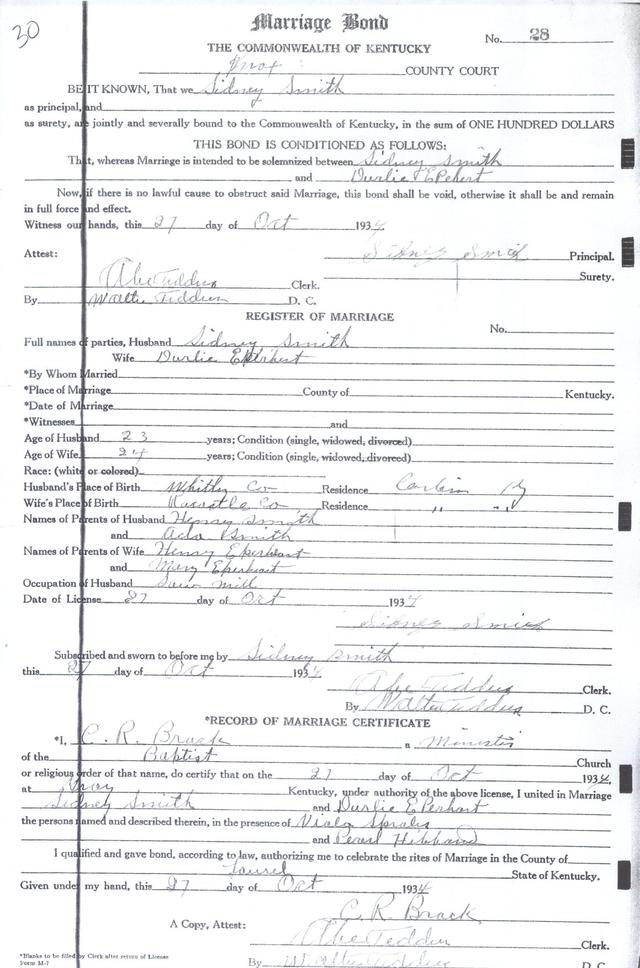 30
Marriage Bond
No. 28
THE COMMONWEALTH OF KENTUCKY
Knox COUNTY COURT
BE IT KNOWN, That we Sidney Smith
as principal, and
as surety, are jointly and severally bound to the Commonwealth of Kentucky, in the sum of ONE HUNDRED DOLLARS
THIS BOND IS CONDITIONED AS FOLLOWS:
That, whereas Marriage is intended to be solemnized between Sidney Smith
and Durlie Eperhert
Now, if there is no lawful cause to obstruct said Marriage, this bond shall be void, otherwise it shall be and remain
in full force and effect.
Witness our hands, this 27 day of Oct 1934
Attest: Sidney Smith Principal.
Surety.
Abe Tedders Clerk.
By Walter Tedders D. C.
REGISTER OF MARRIAGE
No.
Full names of parties, Husband Sidney Smith
Wife Durlie Eperhert
*By Whom Married
*Place of Marriage County of Kentucky.
*Date of Marriage
*Witnesses and
Age of Husband 23 years; Condition (single, widowed, divorced)
Age of Wife 24 years; Condition (single, widowed, divorced)
Race: (white or colored)
Husband's Place of Birth Whitley Co Residence Corbin Ky
Wife's Place of Birth Co Residence " "
Names of Parents of Husband Henry Smith
and Ada Smith
Names of Parents of Wife Henry Eperheart
and Mary Eperheart
Occupation of Husband Saw mill
Date of License 27 day of Oct 1934
Sidney Smith
Subscribed and sworn to before me by Sidney Smith
this 27 day of Oct 1934
Abe Tedders Clerk.
By Walter Tedders D. C.
*RECORD OF MARRIAGE CERTIFICATE
*I, C. R. Brock a Minister
of the Baptist Church
or religious order of that name, do certify that on the 27 day of Oct 1934
at Gray Kentucky, under authority of the above license, I united in Marriage
Sidney Smith and Durlie Eperhart
the persons named and described therein, in the presence of
and Pearl
I qualified and gave bond, according to law, authorizing me to celebrate the rites of Marriage in the County of
Laurel State of Kentucky.
Given under my hand, this 27 day of Oct 1934
C. R. Brock
A Copy, Attest: Abe Tedders Clerk.
*Blanks to be filled by Clerk after return of License
Form M-7
By Walter Tedders D. C.